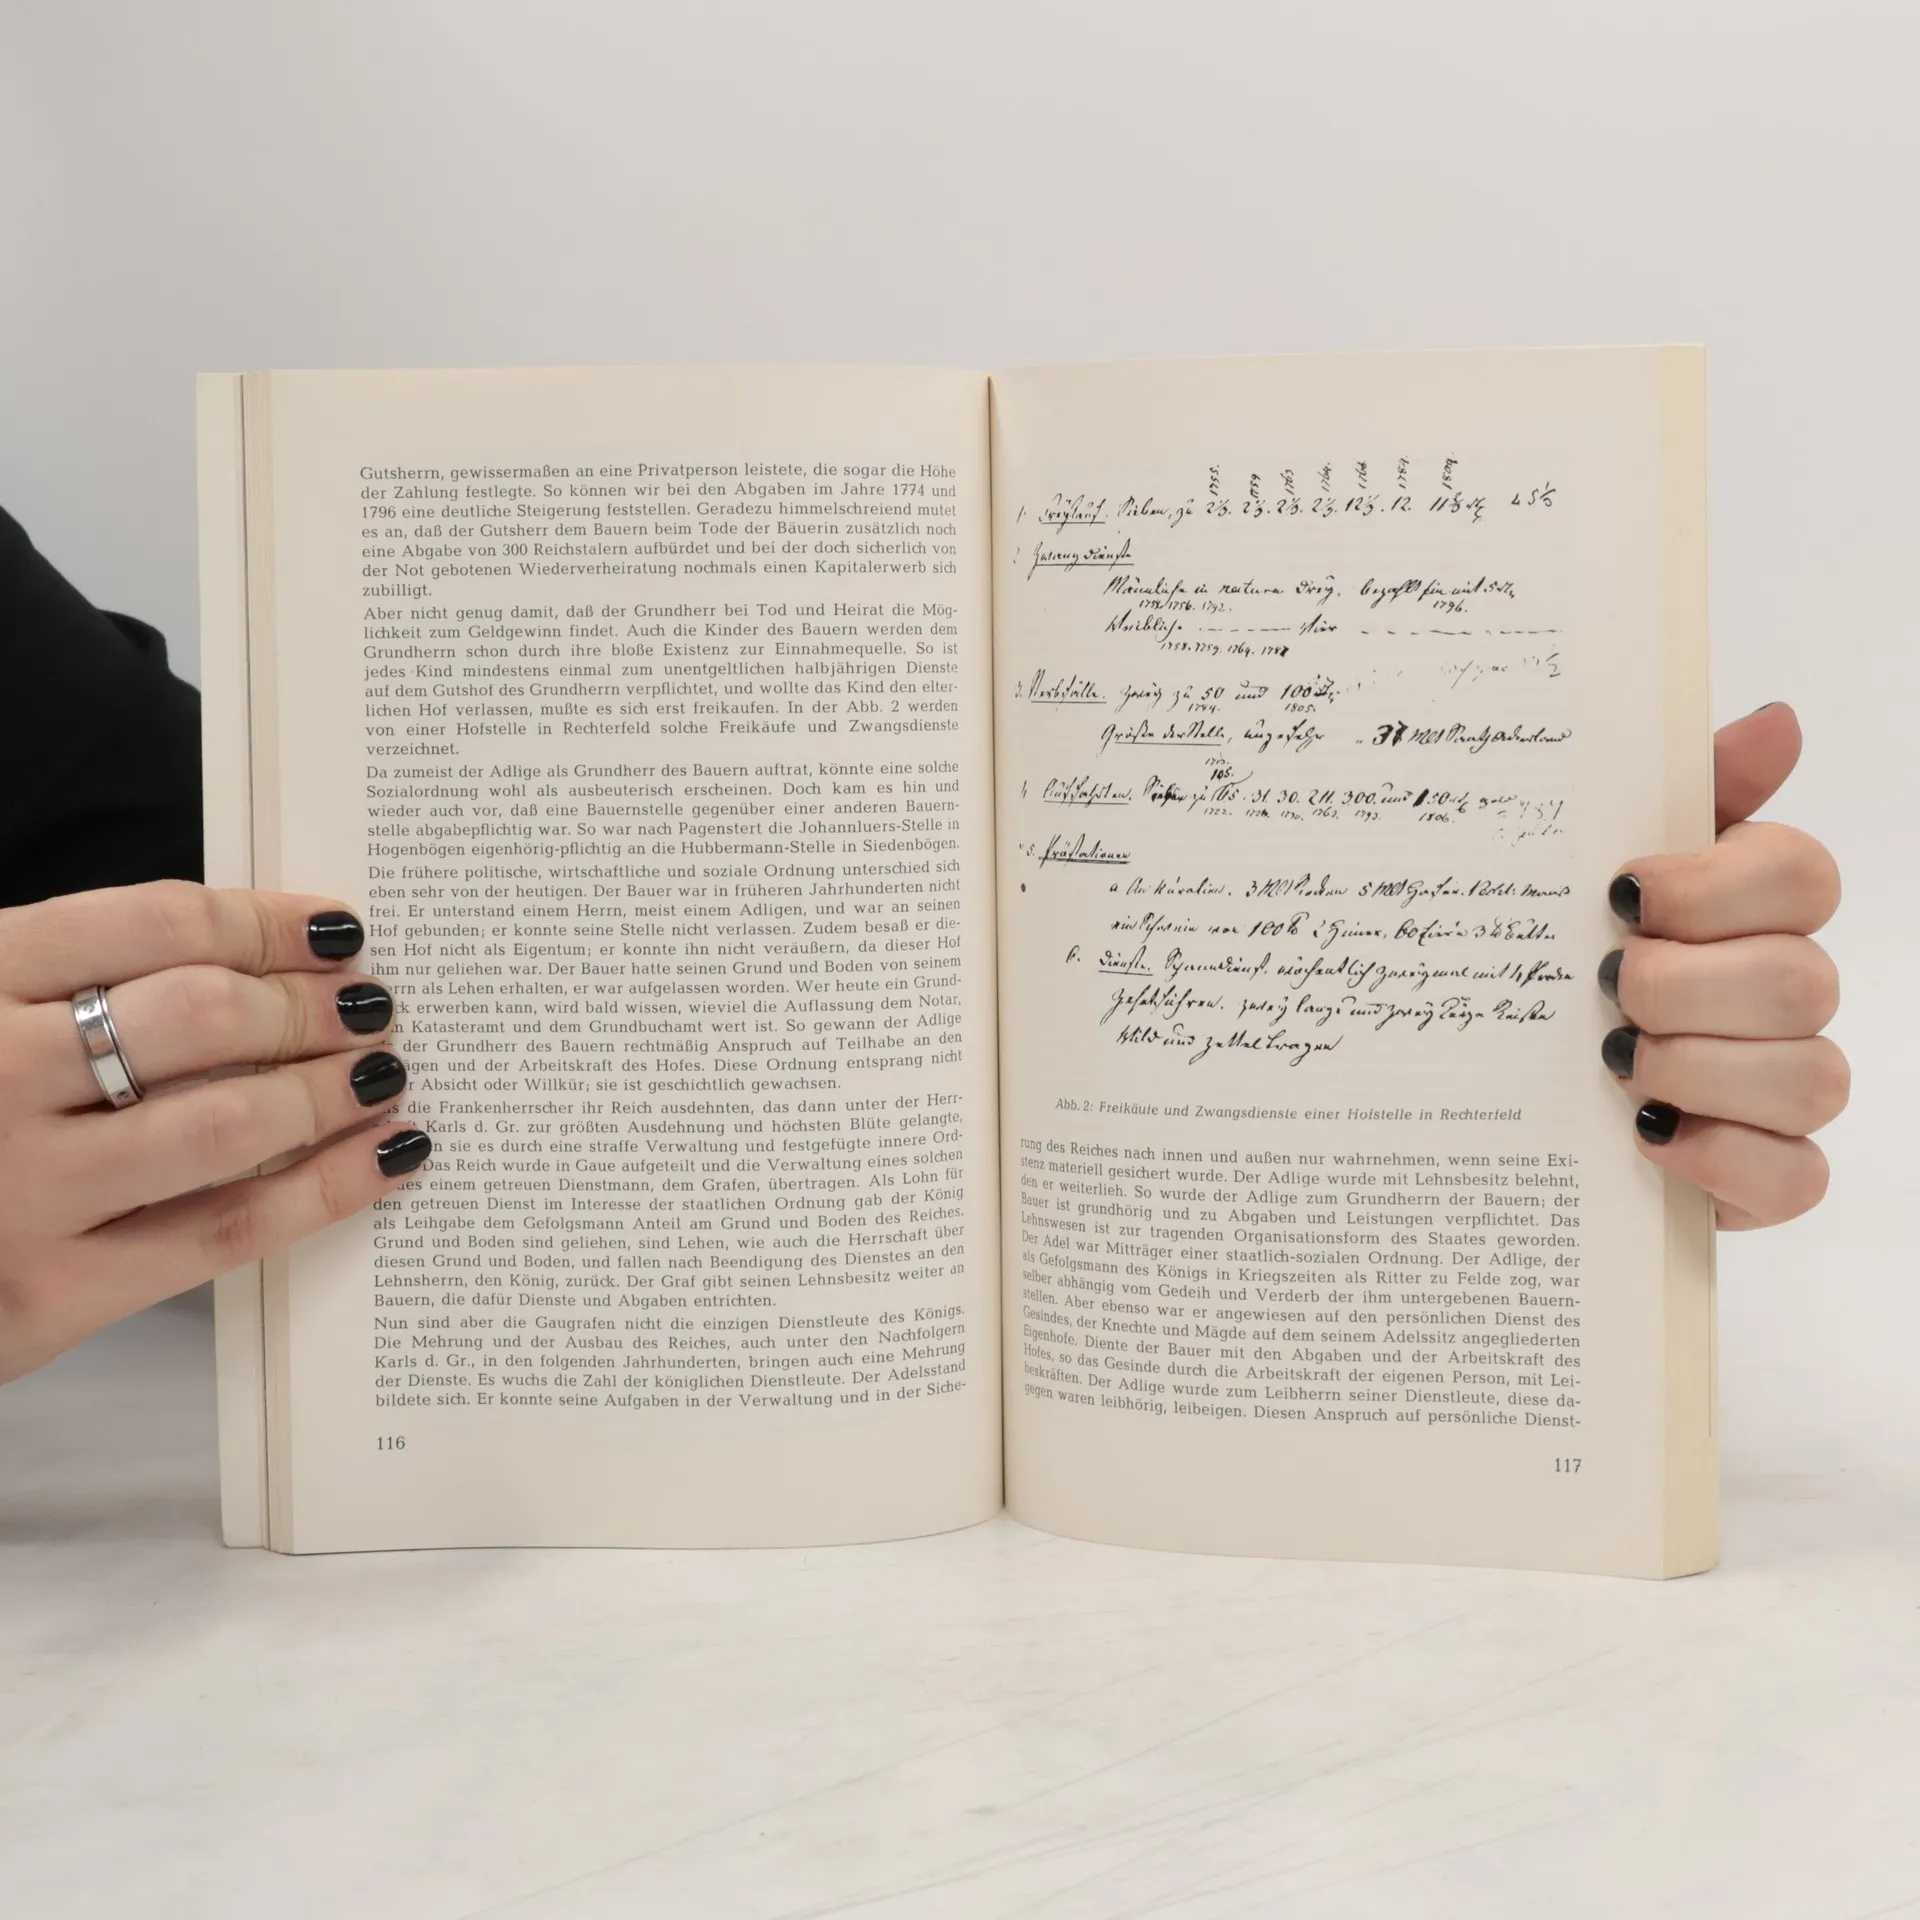 Gutsherrn, gewissermaßen an eine Privatperson leistete, die sogar die Höhe
der Zahlung festlegte. So können wir bei den Abgaben im Jahre 1774 und
1796 eine deutliche Steigerung feststellen. Geradezu himmelschreiend mutet
es an, daß der Gutsherr dem Bauern beim Tode der Bäuerin zusätzlich noch
eine Abgabe von 300 Reichstalern aufbürdet und bei der doch sicherlich von
der Not gebotenen Wiederverheiratung nochmals einen Kapitalerwerb sich
zubilligt.
Aber nicht genug damit, daß der Grundherr bei Tod und Heirat die Mög-
lichkeit zum Geldgewinn findet. Auch die Kinder des Bauern werden dem
Grundherrn schon durch ihre bloße Existenz zur Einnahmequelle. So ist
jedes Kind mindestens einmal zum unentgeltlichen halbjährigen Dienste
auf dem Gutshof des Grundherrn verpflichtet, und wollte das Kind den elter-
lichen Hof verlassen, mußte es sich erst freikaufen. In der Abb. 2 werden
von einer Hofstelle in Rechterfeld solche Freikäufe und Zwangsdienste
verzeichnet.
Da zumeist der Adlige als Grundherr des Bauern auftrat, könnte eine solche
Sozialordnung wohl als ausbeuterisch erscheinen. Doch kam es hin und
wieder auch vor, daß eine Bauernstelle gegenüber einer anderen Bauern-
stelle abgabepflichtig war. So war nach Pagenstert die Johannluers-Stelle in
Hogenbögen eigenhörig-pflichtig an die Hubbermann-Stelle in Siedenbögen.
Die frühere politische, wirtschaftliche und soziale Ordnung unterschied sich
eben sehr von der heutigen. Der Bauer war in früheren Jahrhunderten nicht
frei. Er unterstand einem Herrn, meist einem Adligen, und war an seinen
Hof gebunden; er konnte seine Stelle nicht verlassen. Zudem besaß er die-
sen Hof nicht als Eigentum; er konnte ihn nicht veräußern, da dieser Hof
ihm nur geliehen war. Der Bauer hatte seinen Grund und Boden von seinem
als Lehen erhalten, er war aufgelassen worden. Wer heute ein Grund-
erwerben kann, wird bald wissen, wieviel die Auflassung dem Notar,
Katasteramt und dem Grundbuchamt wert ist. So gewann der Adlige
der Grundherr des Bauern rechtmäßig Anspruch auf Teilhabe an den
und der Arbeitskraft des Hofes. Diese Ordnung entsprang nicht
Absicht oder Willkür; sie ist geschichtlich gewachsen.
die Frankenherrscher ihr Reich ausdehnten, das dann unter der Herr-
Karls d. Gr. zur größten Ausdehnung und höchsten Blüte gelangte,
sie es durch eine straffe Verwaltung und festgefügte innere Ord-
Das Reich wurde in Gaue aufgeteilt und die Verwaltung eines solchen
einem getreuen Dienstmann, dem Grafen, übertragen. Als Lohn für
den getreuen Dienst im Interesse der staatlichen Ordnung gab der König
als Leihgabe dem Gefolgsmann Anteil am Grund und Boden des Reiches.
Grund und Boden sind geliehen, sind Lehen, wie auch die Herrschaft über
diesen Grund und Boden, und fallen nach Beendigung des Dienstes an den
Lehnsherrn, den König, zurück. Der Graf gibt seinen Lehnsbesitz weiter an
Bauern, die dafür Dienste und Abgaben entrichten.
Nun sind aber die Gaugrafen nicht die einzigen Dienstleute des Königs.
Die Mehrung und der Ausbau des Reiches, auch unter den Nachfolgern
Karls d. Gr., in den folgenden Jahrhunderten, bringen auch eine Mehrung
der Dienste. Es wuchs die Zahl der königlichen Dienstleute. Der Adelsstand
bildete sich. Er konnte seine Aufgaben in der Verwaltung und in der Siche-
116
1755. 1759 1764. 1768 1784. 1809.
Freykauf. Sieben, zu
Zwangdienste
Männliche in natura drey, bezahlt
1756. 1792. 1796.
Weibliche Vier
1758. 1759. 1764.
3. Sterbfälle. zwey zu 50 und 100
1805.
Größe der Stelle, ungefehr 37
105.
Auffahrten. 31. 30. 211. 300. und 150
1806.
5. Prästationen
a An Naturalien. 3 Rocken 5
ein Schwein von 100 ℔ 2 Hüner, 60 Eier 3 ℔ Butter
b. Dienste. Spanndienst, wöchentlich zweymal mit 4 Pferden
zwey lange und zwey kurze Reisen
Wild und Zettel tragen
Abb. 2: Freikäufe und Zwangsdienste einer Hofstelle in Rechterfeld
rung des Reiches nach innen und außen nur wahrnehmen, wenn seine Exi-
stenz materiell gesichert wurde. Der Adlige wurde mit Lehnsbesitz belehnt,
den er weiterlieh. So wurde der Adlige zum Grundherrn der Bauern; der
Bauer ist grundhörig und zu Abgaben und Leistungen verpflichtet. Das
Lehnswesen ist zur tragenden Organisationsform des Staates geworden.
Der Adel war Mitträger einer staatlich-sozialen Ordnung. Der Adlige, der
als Gefolgsmann des Königs in Kriegszeiten als Ritter zu Felde zog, war
selber abhängig vom Gedeih und Verderb der ihm untergebenen Bauern-
stellen. Aber ebenso war er angewiesen auf den persönlichen Dienst des
Gesindes, der Knechte und Mägde auf dem seinem Adelssitz angegliederten
Eigenhofe. Diente der Bauer mit den Abgaben und der Arbeitskraft des
Hofes, so das Gesinde durch die Arbeitskraft der eigenen Person, mit Lei-
beskräften. Der Adlige wurde zum Leibherrn seiner Dienstleute, diese da-
gegen waren leibhörig, leibeigen. Diesen Anspruch auf persönliche Dienst-
117